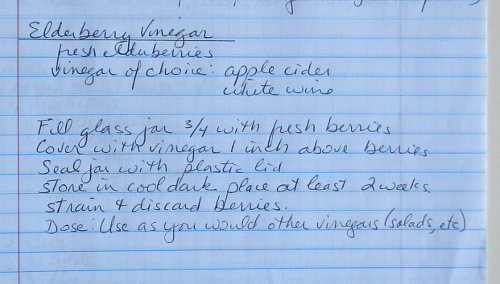 Elderberry Vinegar
fresh elderberries
vinegar of choice: apple cider
white wine
Fill glass jar 3/4 with fresh berries
Cover with vinegar 1 inch above berries
Seal jar with plastic lid
store in cool dark place at least 2 weeks.
strain & discard berries.
Dose: Use as you would other vinegars (salads, etc)